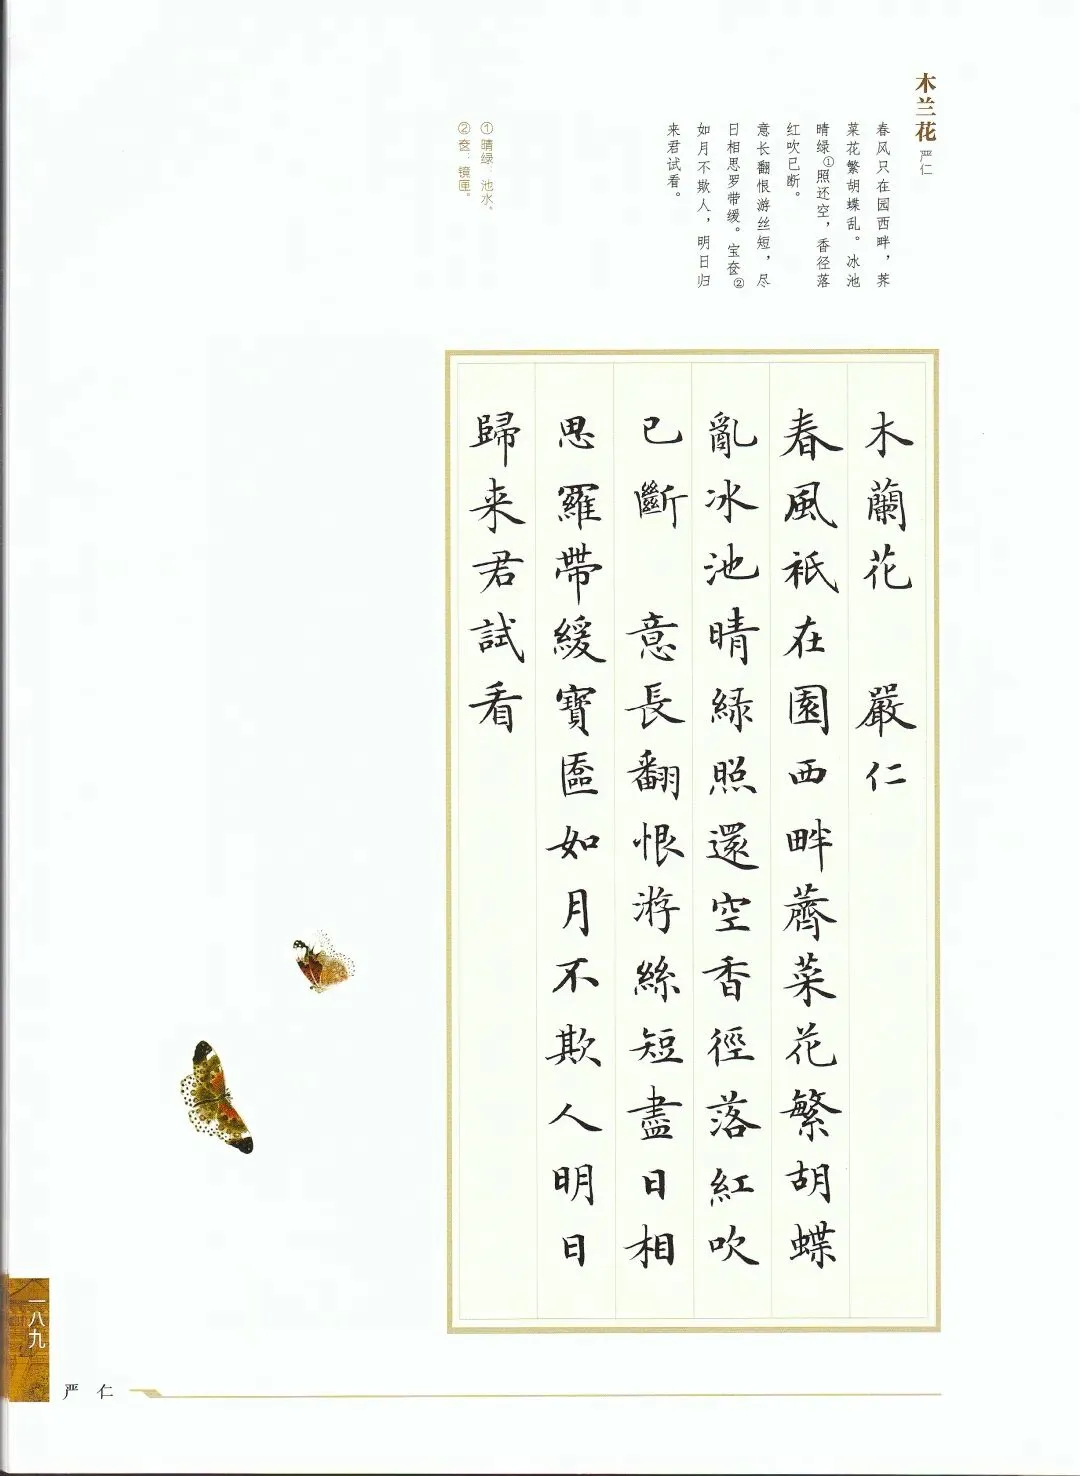 木兰花
严仁
春风只在园西畔，荠
菜花繁胡蝶乱。冰池
晴绿①照还空，香径落
红吹已断。
意长翻恨游丝短，尽
日相思罗带缓。宝奁②
如月不欺人，明日归
来君试看。
①晴绿：池水。
②奁：镜匣。
木蘭花 嚴仁
春風祇在園西畔薺菜花繁胡蝶
亂冰池晴綠照還空香徑落紅吹
已斷 意長翻恨游絲短盡日相
思羅帶緩寶匳如月不欺人明日
歸来君試看
一八九
严 仁